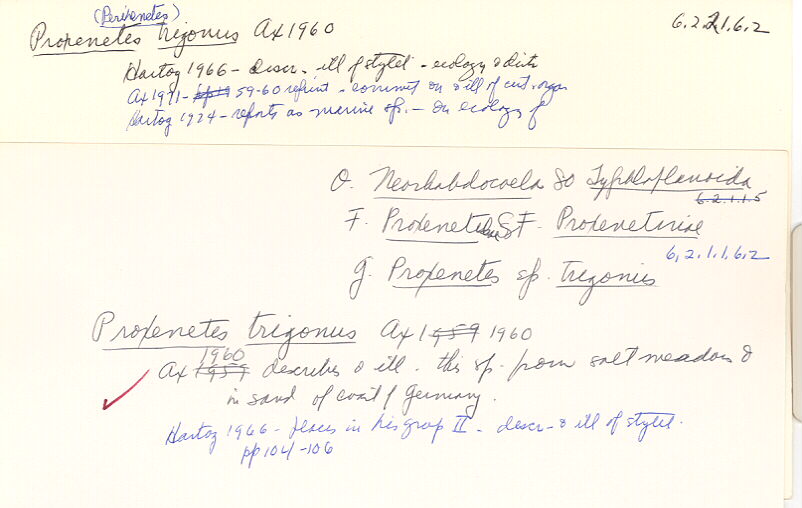 (Perixenetes)
Proxenetes trigonus Ax 1960 6.2.2.1.6.2
Hartog 1966 - descr. - ill of stylet - ecology & distr
Ax 1971 - 59-60 reprint - comment on & ill of cut. organ
Hartog 1974 - reports as marine sp. - on ecology of
O. Neorhabdocoela SO Typhloplanoida
6.2.1.1.5
F. Proxenetidae SF. Proxenetinae
6.2.1.1.6.2
g. Proxenetes sp. trigonus
Proxenetes trigonus Ax 1959 1960
1960
Ax 1959 describes & ill. this sp. from salt meadows &
in sand of coast of Germany.
Hartog 1966 - places in his group II - descr - & ill of stylet.
pp 104-106